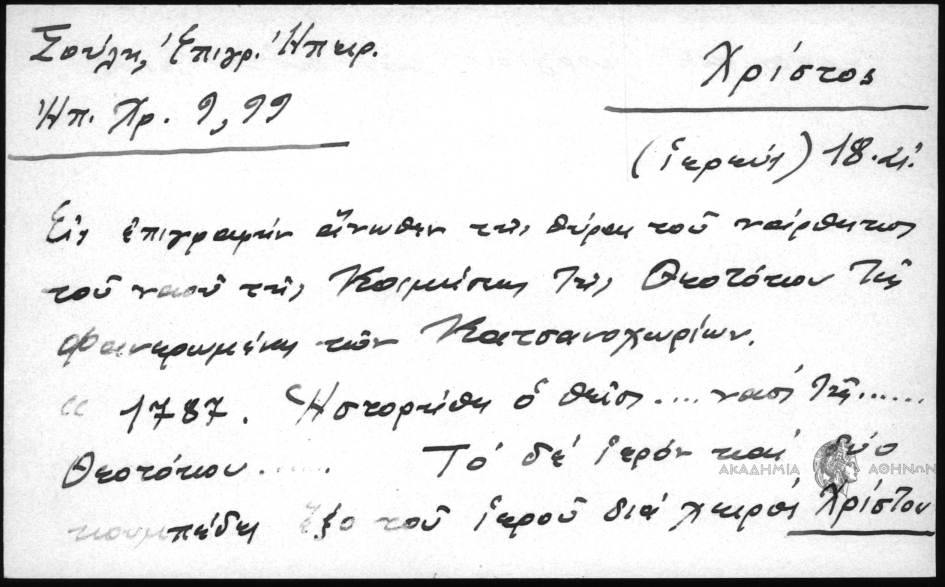 Σούλη, Ἐπιγρ. Ἠπειρ.
Ἠπ. Χρ. 9, 99
Χρίστος
(ἱερεύς) 18. αἰ.
Εἰς ἐπιγραφήν ἄνωθεν τῆς θύρας τοῦ νάρθηκος
τοῦ ναοῦ τῆς Κοιμήσεως τῆς Θεοτόκου τῆς
Φανερωμένης τῶν Κατσανοχωρίων.
« 1787. Ἡστορήθη ὁ θεῖος .... ναός τῆς ......
Θεοτόκου ...... Τό δέ ἱερόν καί δύο
κουμπέδες ἔξο τοῦ ἱεροῦ διά χειρός Χρίστου
ΑΚΑΔΗΜΙΑ ΑΘΗΝΩΝ